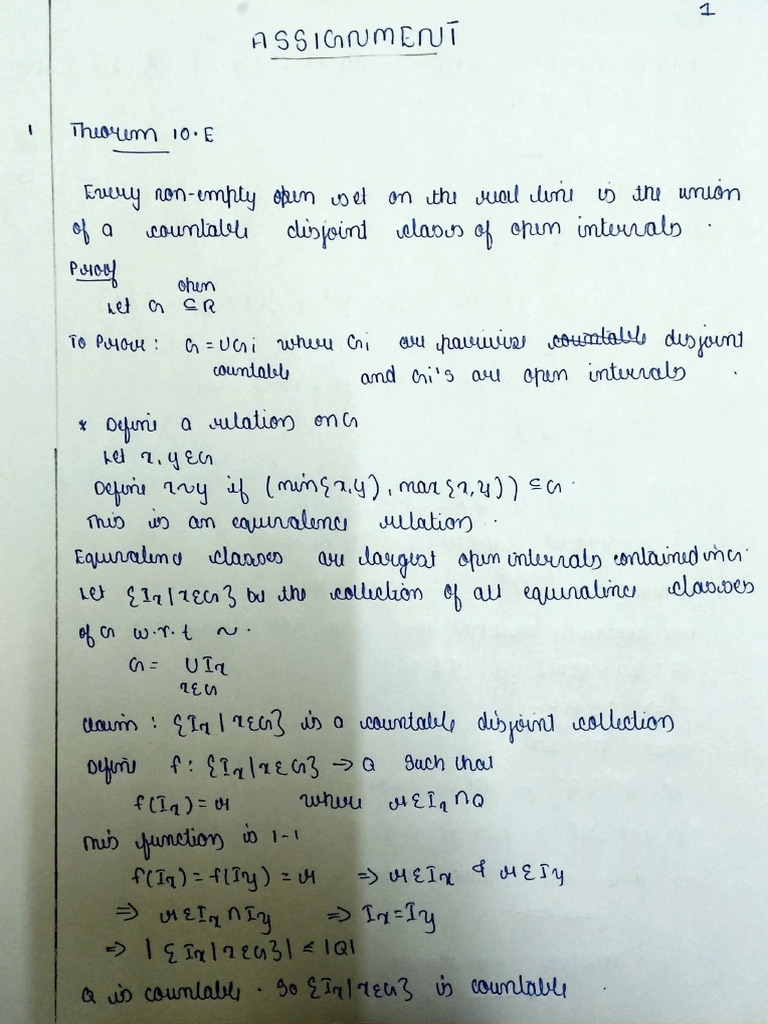 1
ASSIGNMENT
1 Theorem 10.E
Every non-empty open set on the real line is the union
of a countable disjoint classes of open intervals.
Proof
Let G ⊆ R
open
To Prove: G = UGi where Gi are pairwise countable disjoint
countable and Gi's are open intervals.
* Define a relation on G
Let x, y ∈ G
Define x~y if (min{x,y), max{x,y}) ⊆ G.
This is an equivalence relation.
Equivalence classes are largest open intervals contained in G.
Let {Ix | x∈G} be the collection of all equivalence classes
of G w.r.t ~.
G = U Ix
x∈G
Claim : {Ix | x∈G} is a countable disjoint collection
Define f : {Ix | x∈G} → Q such that
f(Ix) = r where r ∈ Ix ∩ Q
This function is 1-1
f(Ix) = f(Iy) = r ⇒ r ∈ Ix & r ∈ Iy
⇒ r ∈ Ix ∩ Iy ⇒ Ix = Iy
⇒ | {Ix | x∈G} | ≤ |Q|
Q is countable. So {Ix | x∈G} is countable.